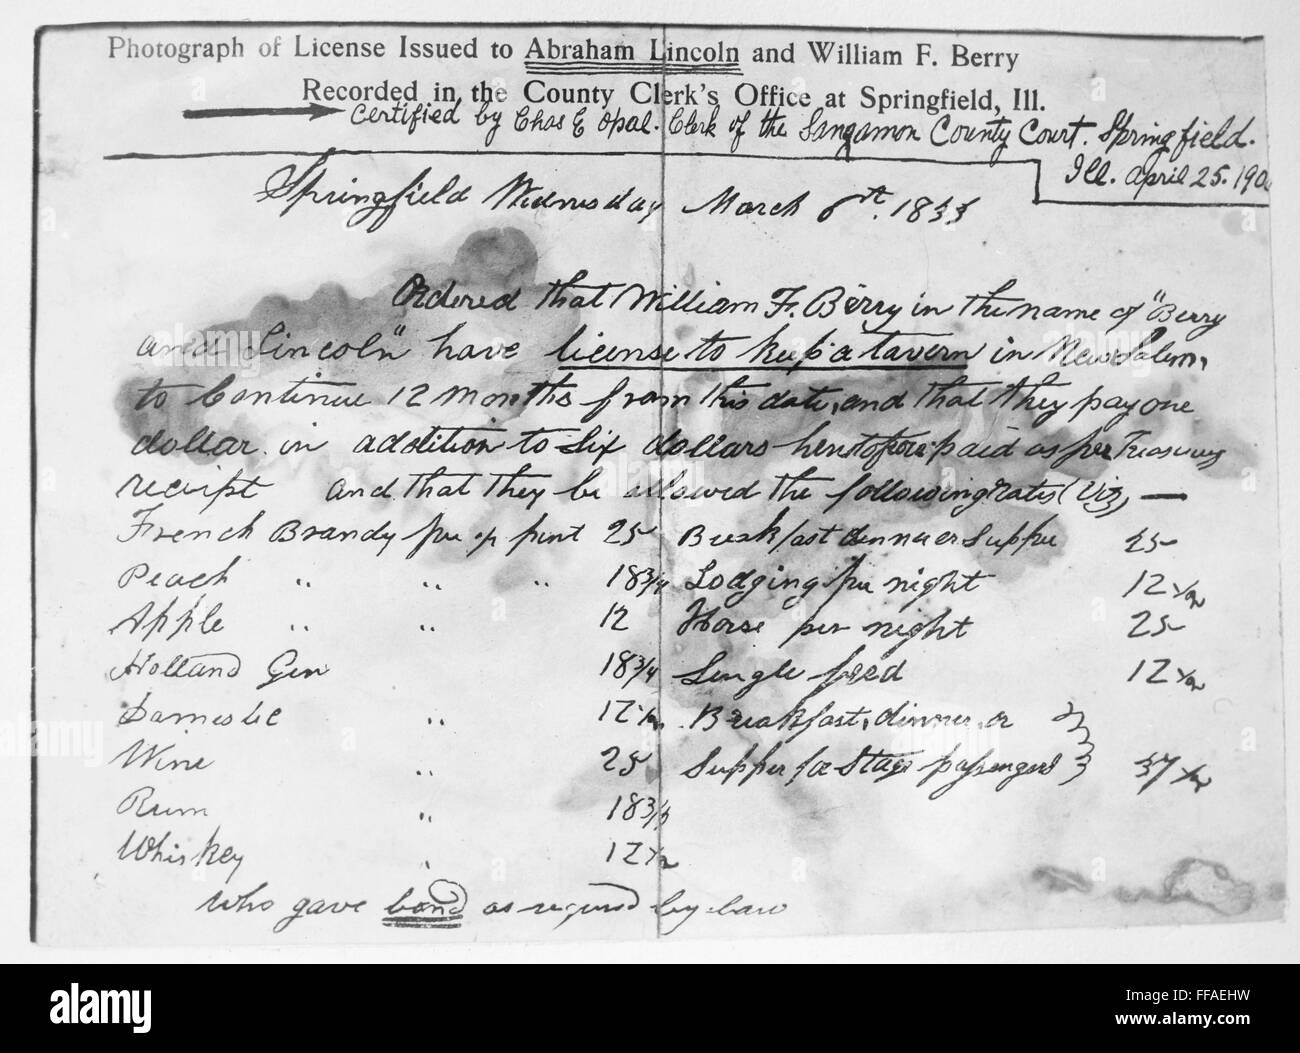 Photograph of License Issued to Abraham Lincoln and William F. Berry
Recorded in the County Clerk's Office at Springfield, Ill.
Certified by Chas E Opal. Clerk of the Sangamon County Court. Springfield.
Ill. April 25. 190
Springfield Wednesday March 6th. 1833
Ordered that William F. Berry in the name of "Berry
and Lincoln" have license to keep a tavern in New Salem,
to Continue 12 months from this date, and that they pay one
dollar in addition to Six dollars heretofore paid as per Treasurey
receipt and that they be allowed the following rates (Viz) —
French Brandy per pint 25 Breakfast dinner or Supper 25
Peach " " " 18 3/4 Lodging per night 12 1/2
Apple " " 12 Horse per night 25
Holland Gin 18 3/4 Single feed 12 1/2
Domestic " 12 1/2 Breakfast, dinner, or
Wine " 25 Supper for Stage passengers 37 1/2
Rum " 18 3/4
Whiskey " 12 1/2
who gave bond as required by law
alamy
Image ID: FFAEHW
www.alamy.com